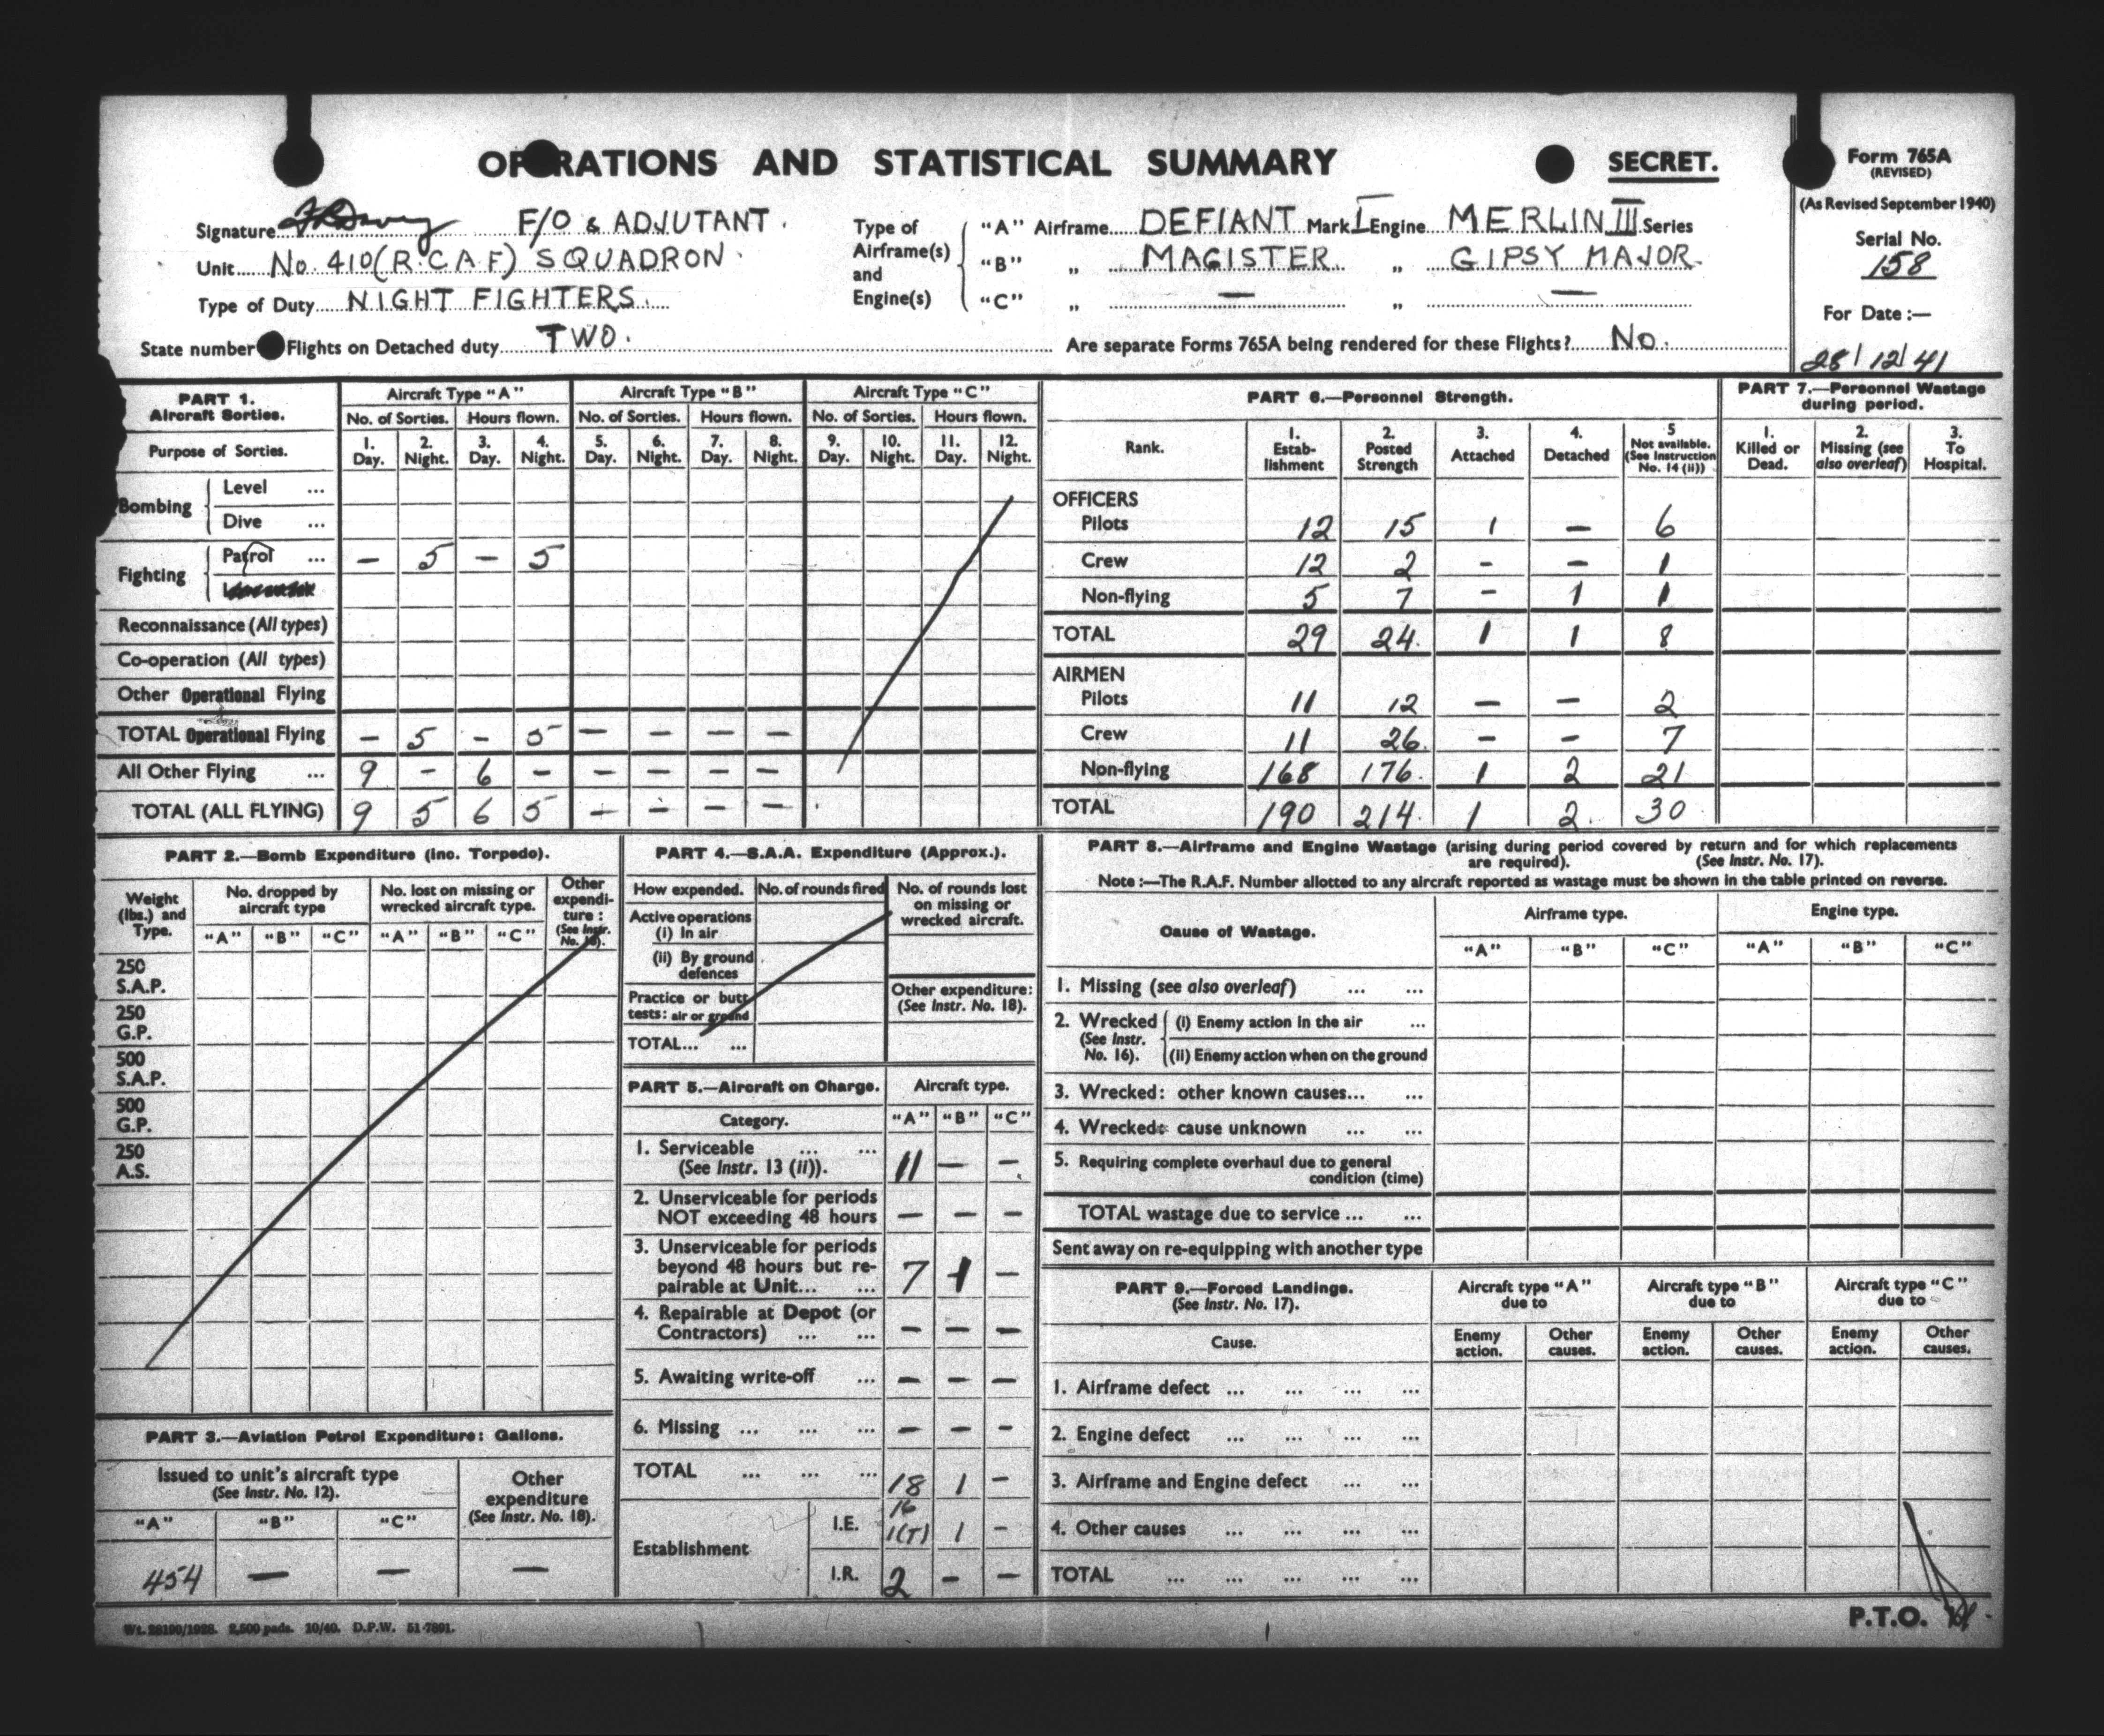 OPERATIONS AND STATISTICAL SUMMARY SECRET.
Form 765A
(REVISED)
(As Revised September 1940)
Serial No.
158
For Date :—
28/12/41
Signature F/O & ADJUTANT.
Unit No. 410 (R.C.A.F) SQUADRON.
Type of Duty NIGHT FIGHTERS.
State number Flights on Detached duty TWO.
Type of Airframe(s) and Engine(s)
"A" Airframe DEFIANT Mark I Engine MERLIN III Series
"B" „ MAGISTER „ GIPSY MAJOR.
"C" „ — „ —
Are separate Forms 765A being rendered for these Flights? No.
PART 1.
Aircraft Sorties.
Aircraft Type "A" Aircraft Type "B" Aircraft Type "C"
No. of Sorties. Hours flown. No. of Sorties. Hours flown. No. of Sorties. Hours flown.
Purpose of Sorties.
1. Day. 2. Night. 3. Day. 4. Night. 5. Day. 6. Night. 7. Day. 8. Night. 9. Day. 10. Night. 11. Day. 12. Night.
Bombing
Level ...
Dive ...
Fighting
Patrol ... — 5 — 5
Reconnaissance (All types)
Co-operation (All types)
Other Operational Flying
TOTAL Operational Flying — 5 — 5 — — — —
All Other Flying ... 9 — 6 — — — — —
TOTAL (ALL FLYING) 9 5 6 5 — — — —
PART 6.—Personnel Strength.
Rank.
1. Establishment
2. Posted Strength
3. Attached
4. Detached
5 Not available. (See Instruction No. 14 (ii))
OFFICERS
Pilots 12 15 1 — 6
Crew 12 2 - — 1
Non-flying 5 7 - 1 1
TOTAL 29 24. 1 1 8
AIRMEN
Pilots 11 12 — — 2
Crew 11 26. — - 7
Non-flying 168 176. 1 2 21
TOTAL 190 214. 1 2. 30
PART 7.—Personnel Wastage during period.
1. Killed or Dead.
2. Missing (see also overleaf)
3. To Hospital.
PART 2.—Bomb Expenditure (inc. Torpedo).
Weight (lbs.) and Type.
No. dropped by aircraft type
No. lost on missing or wrecked aircraft type.
Other expenditure : (See Instr. No. 18).
"A" "B" "C" "A" "B" "C"
250 S.A.P.
250 G.P.
500 S.A.P.
500 G.P.
250 A.S.
PART 3.—Aviation Petrol Expenditure: Gallons.
Issued to unit's aircraft type
(See Instr. No. 12).
Other expenditure
(See Instr. No. 18).
"A" "B" "C"
454 — — —
PART 4.—S.A.A. Expenditure (Approx.).
How expended. No. of rounds fired
No. of rounds lost on missing or wrecked aircraft.
Active operations
(i) In air
(ii) By ground defences
Practice or butt tests: air or ground
Other expenditure: (See Instr. No. 18).
TOTAL... ...
PART 5.—Aircraft on Charge. Aircraft type.
Category. "A" "B" "C"
1. Serviceable ... ...
(See Instr. 13 (ii)). 11 — —
2. Unserviceable for periods
NOT exceeding 48 hours — — —
3. Unserviceable for periods
beyond 48 hours but re-
pairable at Unit... ... 7 1 —
4. Repairable at Depot (or
Contractors) ... ... — — —
5. Awaiting write-off ... — — —
6. Missing ... ... ... — — —
TOTAL ... ... ... 18 1 —
Establishment
I.E. 16 1(T) 1 —
I.R. 2 — —
PART 8.—Airframe and Engine Wastage (arising during period covered by return and for which replacements
are required). (See Instr. No. 17).
Note :—The R.A.F. Number allotted to any aircraft reported as wastage must be shown in the table printed on reverse.
Cause of Wastage. Airframe type. Engine type.
"A" "B" "C" "A" "B" "C"
1. Missing (see also overleaf) ... ...
2. Wrecked (See Instr. No. 16).
(i) Enemy action in the air ...
(ii) Enemy action when on the ground
3. Wrecked: other known causes... ...
4. Wrecked: cause unknown ... ...
5. Requiring complete overhaul due to general
condition (time)
TOTAL wastage due to service ... ...
Sent away on re-equipping with another type
PART 9.—Forced Landings.
(See Instr. No. 17).
Aircraft type "A" due to Aircraft type "B" due to Aircraft type "C" due to
Cause.
Enemy action. Other causes. Enemy action. Other causes. Enemy action. Other causes.
1. Airframe defect ... ... ... ...
2. Engine defect ... ... ... ...
3. Airframe and Engine defect ... ...
4. Other causes ... ... ... ...
TOTAL ... ... ... ... ...
Wt. 28190/1928. 2,500 pads. 10/40. D.P.W. 51-7891.
P.T.O.